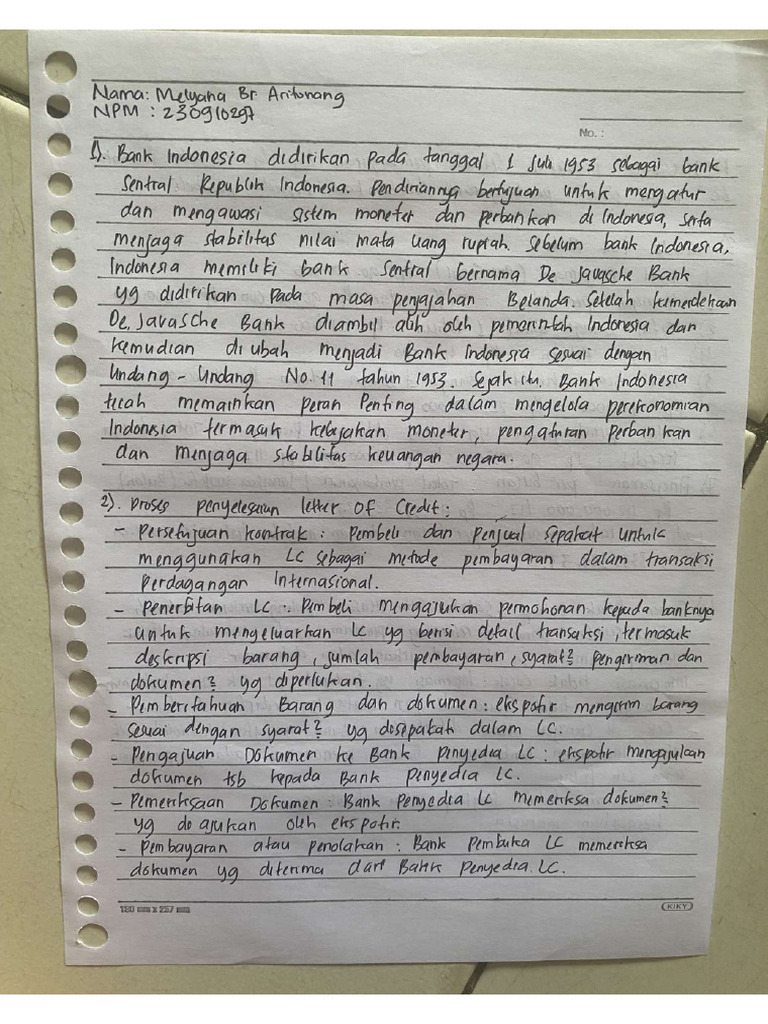 Nama: Melyana Br Aritonang
NPM : 230910297
No. :
1). Bank Indonesia didirikan pada tanggal 1 Juli 1953 sebagai bank
Sentral Republik Indonesia. Pendiriannya bertujuan untuk mengatur
dan mengawasi sistem moneter dan perbankan di Indonesia, serta
menjaga stabilitas nilai mata uang rupiah. Sebelum bank Indonesia,
Indonesia memiliki bank Sentral bernama De Javasche Bank
yg didirikan pada masa penjajahan Belanda. Setelah kemerdekaan
De Javasche Bank diambil alih oleh pemerintah Indonesia dan
kemudian di ubah menjadi Bank Indonesia sesuai dengan
Undang - Undang No. 11 tahun 1953. Sejak itu, Bank Indonesia
telah memainkan peran Penting dalam mengelola perekonomian
Indonesia termasuk kebijakan moneter, pengaturan perbankan
dan menjaga stabilitas keuangan negara.
2). Proses penyelesaian letter OF Credit :
- Persetujuan kontrak : Pembeli dan Penjual Sepakat untuk
menggunakan LC sebagai metode pembayaran dalam transaksi
Perdagangan Internasional.
- Penerbitan LC : Pembeli mengajukan permohonan kepada banknya
untuk mengeluarkan LC yg berisi detail transaksi, termasuk
deskripsi barang, jumlah pembayaran, syarat2 pengiriman dan
dokumen2 yg diperlukan.
- Pemberitahuan Barang dan dokumen : ekspotir mengirim barang
sesuai dengan syarat2 yg dosepakati dalam LC.
- Pengajuan Dokumen ke Bank Penyedia LC : ekspotir mengajukan
dokumen tsb kepada Bank Penyedia LC.
- Pemeriksaan Dokumen : Bank Penyedia LC memeriksa dokumen2
yg do ajukan oleh ekspotir.
- Pembayaran atau penolakan : Bank Pembuka LC memeriksa
dokumen yg diterima dari Bank Penyedia LC.
180 mm x 257 mm
KIKY